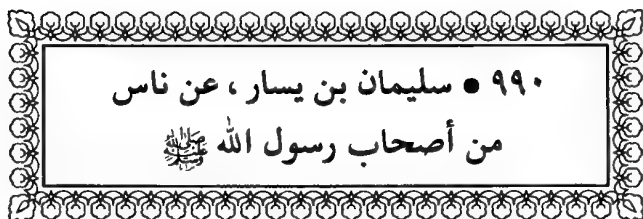 ٩٩٠ ● سليمان بن يسار ، عن ناس
من أصحاب رسول الله ﷺ